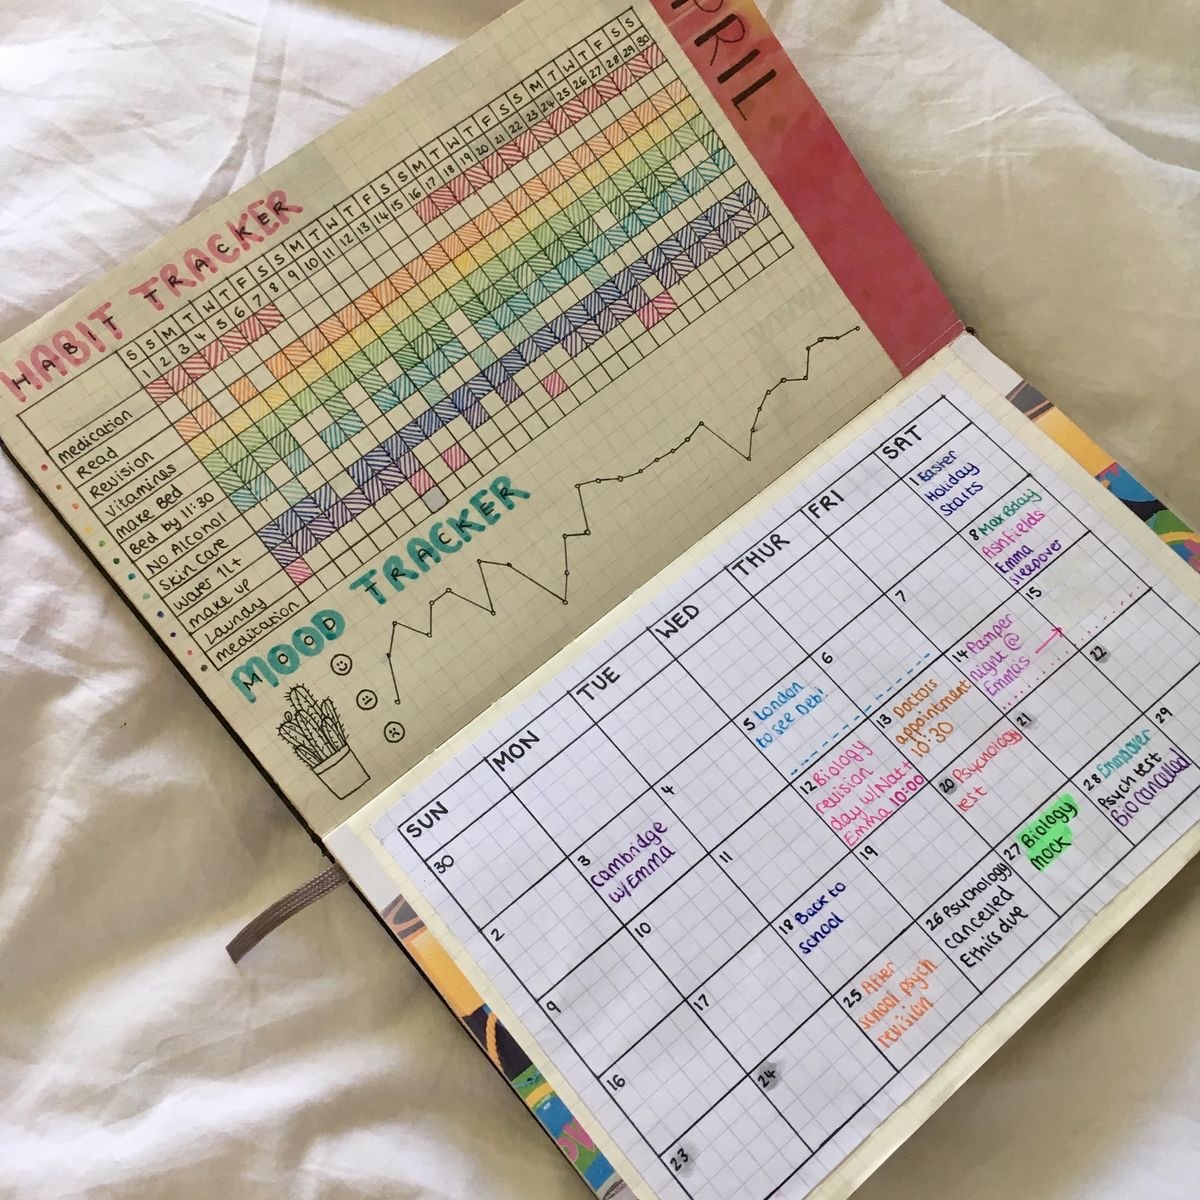 PRIL
HABIT TRACKER
S S M T W T F S S M T W T F S S M T W T F S S M T W T F S S
1 2 3 4 5 6 7 8 9 10 11 12 13 14 15 16 17 18 19 20 21 22 23 24 25 26 27 28 29 30
medication
Read
Revision
Vitamins
make Bed
Bed by 11:30
No Alcohol
skin care
water 1L+
make up
Laundry
meditation
MOOD TRACKER
SUN MON TUE WED THUR FRI SAT
1 Easter
Holiday
Starts
30
2
3 Cambridge
w/Emma
4
5 London
to see Debi
6
7
8 Max Bday
Ashfields
Emma
sleepover
9
10
11
12 Biology
revision
day w/Nat+
Emma 10:00
13 Doctors
appointment
10:30
14 Pamper
night @
Emmas
15
16
17
18 Back to
school
19
20 Psychology
test
21
22
23
24
25 After
school psych
revision
26 Psychology
cancelled
Ethics due
27 Biology
mock
28 Empower
Psych test
Bio cancelled
29